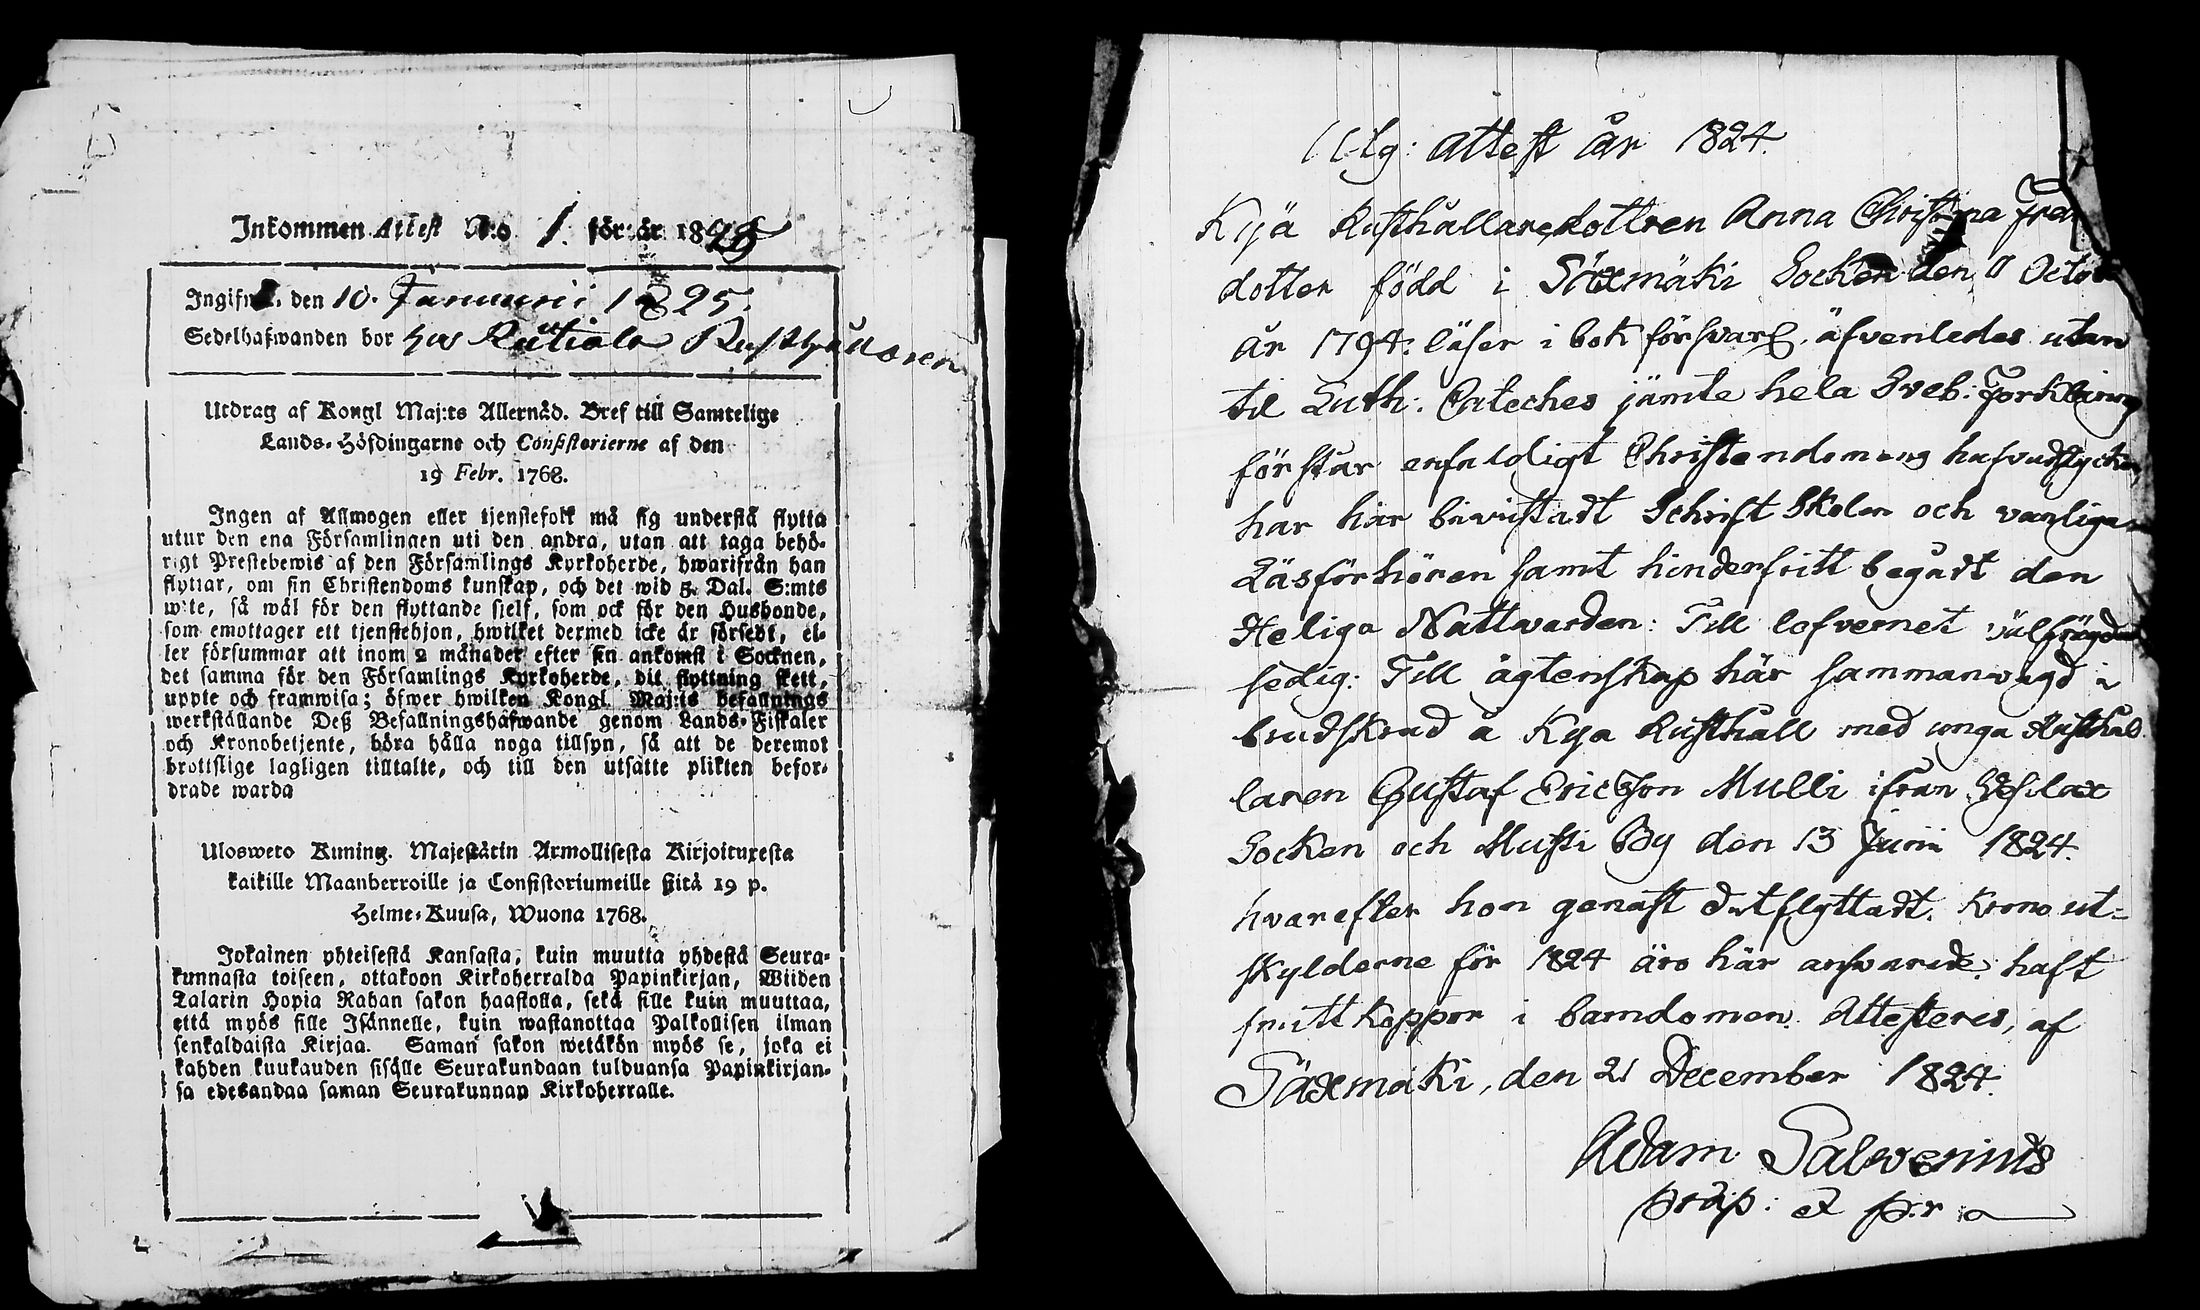 Inkommen Attest N:o 1. för år 1825
Ingifwen den 10. Januarii 1825.
Sedelhafwanden bor hos Rütiala Rusthållaren
Utdrag af Kongl Maj:ts Allernåd. Bref till Samtelige
Lands-Höfdingarne och Consistorierne af den
19 Febr. 1768.
Ingen af Allmogen eller tjenstefolk må sig understå flytta
utur den ena Församlingen uti den andra, utan att taga behö-
rigt Prestebewis af den Församlings Kyrkoherde, hwarifrån han
flyttar, om sin Christendoms kunskap, och det wid 5. Dal. S:mts
wite, så wäl för den flyttande sjelf, som ock för den Husbonde,
som emottager ett tjenstehjon, hwilket dermed icke är försedt, el-
ler försummar att inom 2 månader efter sin ankomst i Socknen,
det samma för den Församlings Kyrkoherde, dit flyttning skett,
uppte och framwisa; öfwer hwilken Kongl Maj:ts befallnings
werkställande Deß Befallningshafwande genom Lands-Fiskaler
och Kronobetjente, böra hålla noga tillsyn, så att de deremot
brottslige lagligen tilltalte, och till den utsatte plikten befor-
drade warda
Ulosweto Kuning. Majestätin Armollisesta Kirjoituxesta
kaikille Maanherroille ja Consistoriumeille siitä 19 p.
Helme-Kuusa, Wuona 1768.
Jokainen yhteisestä Kansasta, kuin muutta yhdestä Seura-
kunnasta toiseen, ottakoon Kirkoherralda Papinkirjan, Wiiden
Talarin Hopia Rahan sakon haastolla, sekä sille kuin muuttaa,
että myös sille Isännelle, kuin wastanottaa Palkollisen ilman
senkaldaista Kirjaa. Saman sakon wetäkön myös se, joka ei
kahden kuukauden sisälle Seurakundaan tulduansa Papinkirjan-
sa edesandaa saman Seurakunnan Kirkoherralle.
Utg: attest år 1824.
Kyä Rusthållaredottren Anna Christina
dotter född i Säxmäki Socken den
år 1794: läser i bok försvarl. äfvenledes utan
til Luth: Cateches jämte hela Sveb: Forklaring
förstår enfaldigt Christendomens hufvudstycken
har här bivistadt Schrift Skolan och vanliga
Läsförhören samt hinderfritt begådt den
Heliga Nattwarden: Till lefvernet välfrägdad
sedig: Till ägtenskap här sammanvigd i
brudskrud å Kyä Rusthåll med unga Rusthål
laren Gustaf Ericsson Mulli ifrån Vesilax
Socken och Musti By den 13 Junii 1824.
hvarefter hon genast ditflyttadt. Krono ut-
skylderne för 1824 äro här answarade; haft
smittkoppor i barndomen. Attesteres, af
Säxmäki, den 21 December 1824.
Adam Salwenius
prap: et p:r